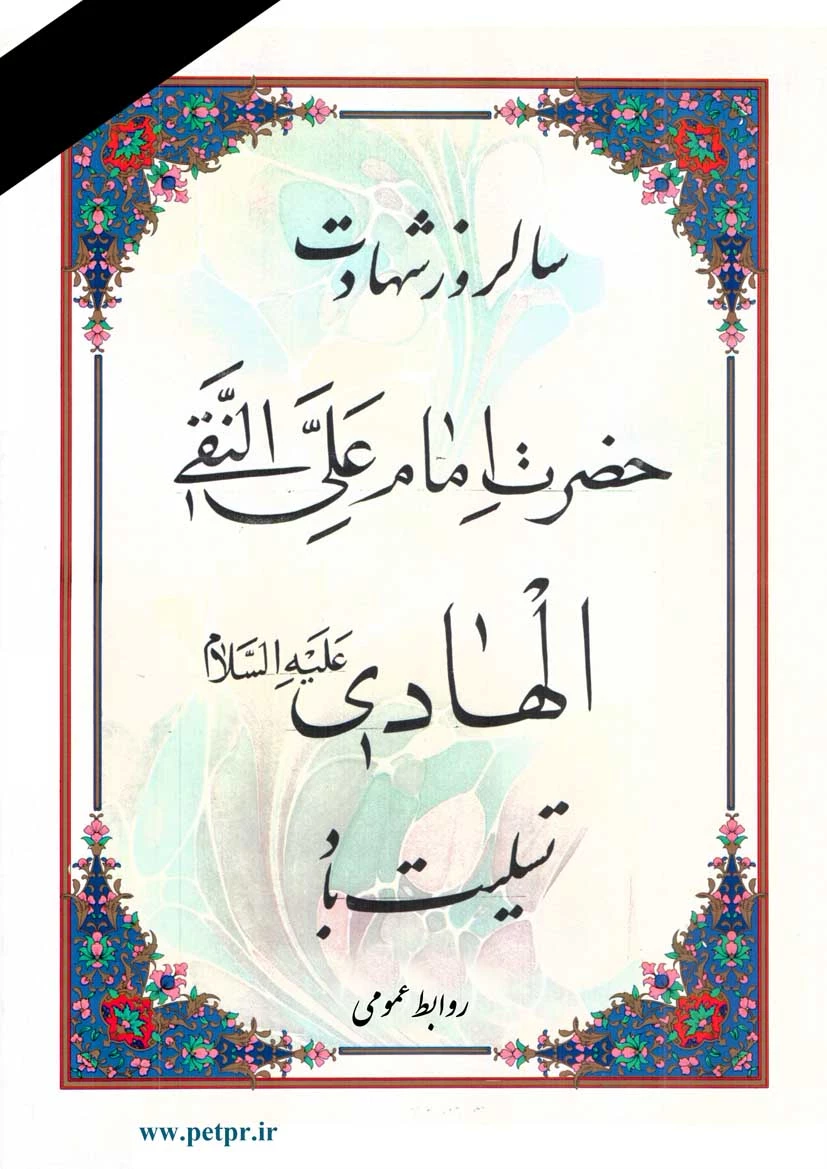 سالروز شهادت
حضرت اِمام عَلیَّ النَّقی
الْهادی عَلَیْهِ السَّلام
تسلیت باد
روابط عمومی
ww.petpr.ir